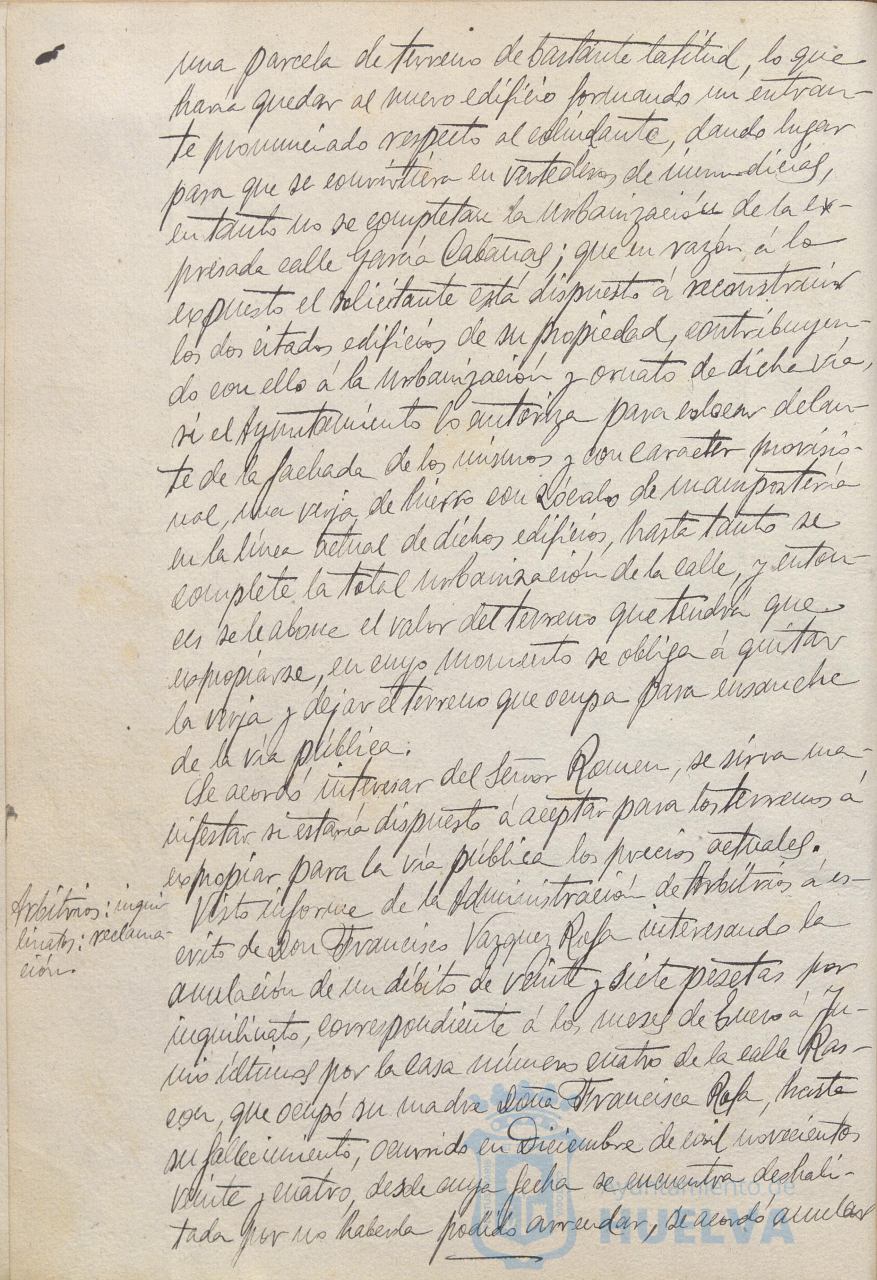 una parcela de terreno de bastante latitud, lo que
haria quedar al nuevo edificio formando un entran-
te pronunciado respecto al colindante, dando lugar
para que se convirtiera en vertederos de inmundicias,
en tanto no se completase la urbanización de la ex-
presada calle García Cabañas; que en razón á lo
expuesto el solicitante está dispuesto á reconstruir
los dos citados edificios de su propiedad, contribuyen-
do con ello á la urbanización y ornato de dicha vía,
si el Ayuntamiento lo autoriza para colocar delan-
te de la fachada de los mismos y con caracter provisio-
nal, una verja de hierro con zócalo de mampostería
en la línea actual de dichos edificios, hasta tanto se
complete la total urbanización de la calle, y enton-
ces se le abone el valor del terreno que tendrá que
expropiarse, en cuyo momento se obliga á quitar
la verja y dejar el terreno que ocupa para ensanche
de la vía pública.
Se acordó interesar del Señor Romeu, se sirva ma-
nifestar si estaría dispuesto á aceptar para los terrenos á
expropiar para la vía pública los precios actuales.
Arbitrios: inqui-
linatos: reclama-
ción.
Visto informe de la Administración de Arbitrios á es-
crito de Don Francisco Vazquez Rofa interesando la
anulación de un débito de veinte y siete pesetas por
inquilinato, correspondiente á los meses de Enero á Ju-
nio últimos por la casa número cuatro de la calle Ras-
con, que ocupó su madre Doña Francisca Rofa, hasta
su fallecimiento, ocurrido en Diciembre de mil novecientos
veinte y cuatro, desde cuya fecha se encuentra deshabi-
tada por no haberla podido arrendar, se acordó anular
Ayuntamiento de
HUELVA